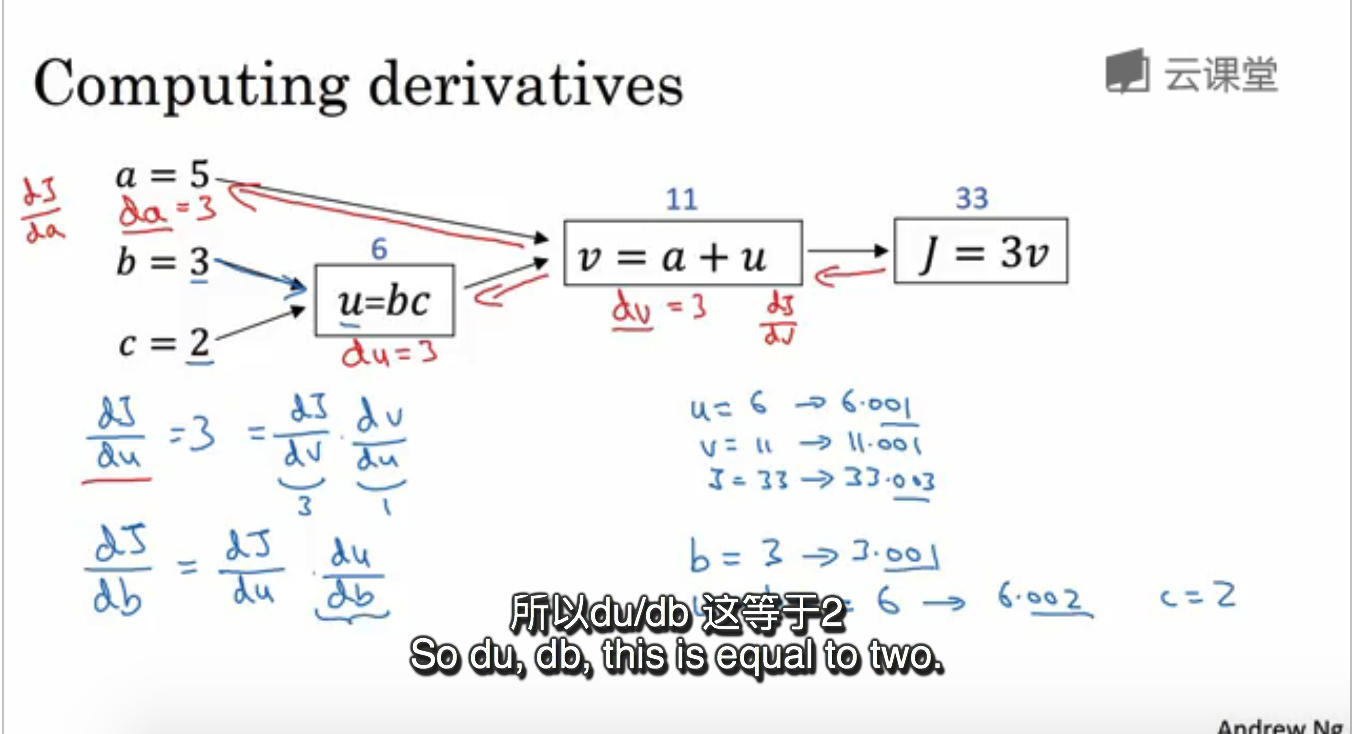 Computing derivatives
云课堂
a = 5
dJ/da
da = 3
b = 3
c = 2
6
u=bc
du = 3
11
v = a + u
dv = 3
dJ/dv
33
J = 3v
dJ/du = 3 = dJ/dv · dv/du
3 1
u = 6 → 6.001
v = 11 → 11.001
J = 33 → 33.003
dJ/db = dJ/du · du/db
b = 3 → 3.001
= 6 → 6.002 c = 2
所以du/db 这等于2
So du, db, this is equal to two.
Andrew Ng